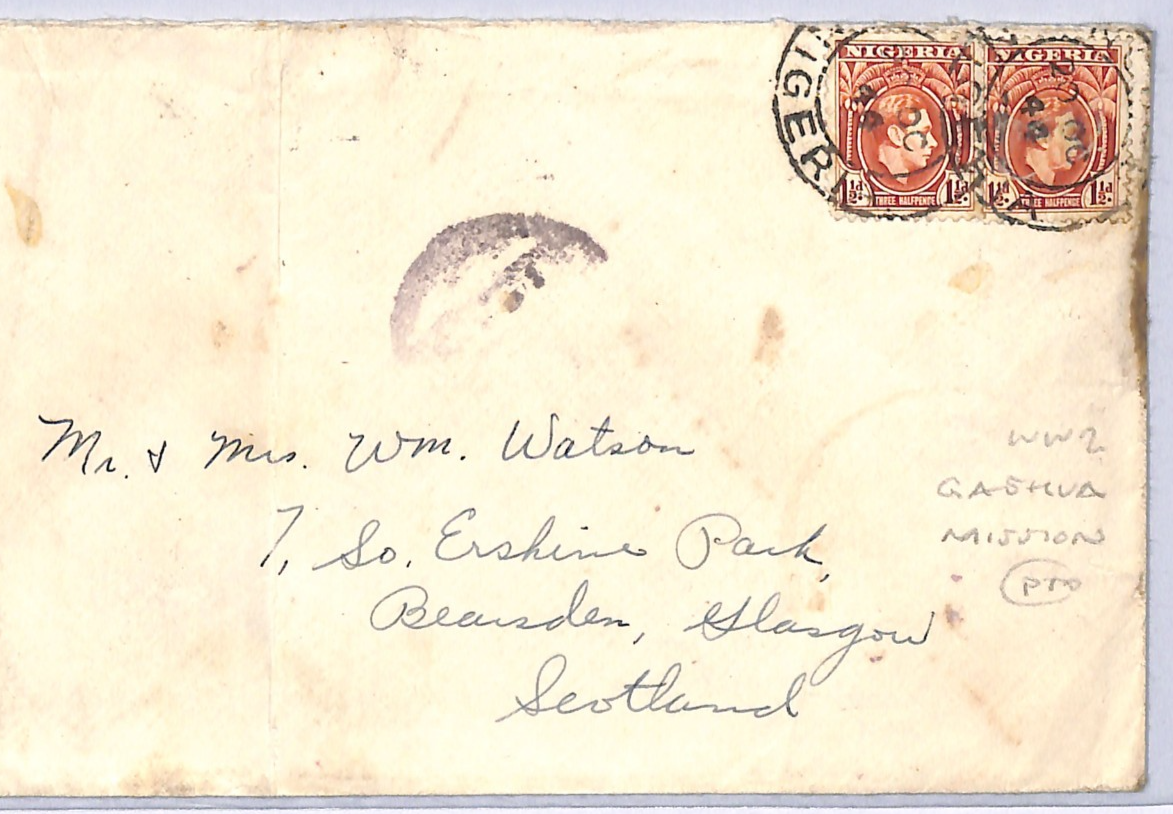 NIGERIA NIGERIA
1½d. THREE HALFPENCE 1½d. 1½d. THREE HALFPENCE 1½d.
NIGERIA
OC
Mr. & Mrs. Wm. Watson
7, So. Erskine Park,
Bearsden, Glasgow
Scotland
WW2
GASHUA
MISSION
PTO